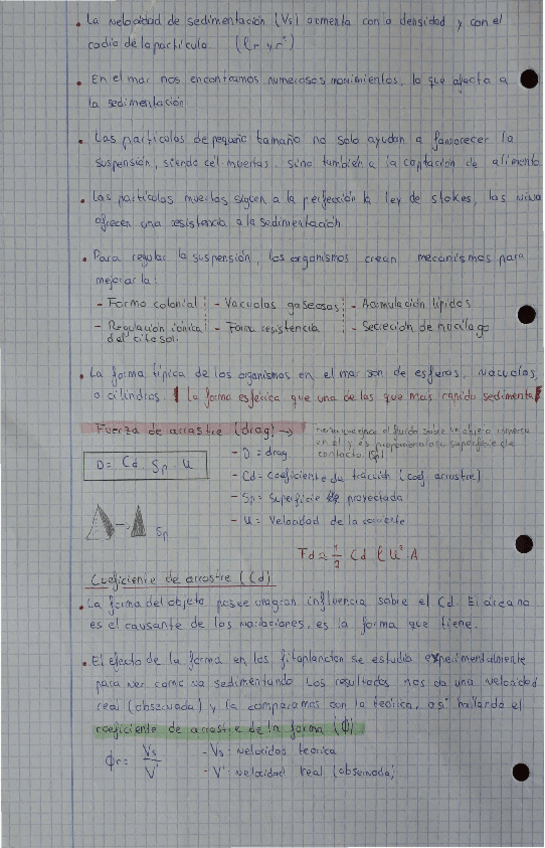 • La velocidad de sedimentación (Vs) aumenta con la densidad y con el
radio de la partícula. (ℓr y r²)
• En el mar nos encontramos numerosos movimientos, lo que afecta a
la sedimentación
• Las partículas de pequeño tamaño no solo ayudan a favorecer la
suspensión, siendo cel. muertas, sino también a la captación de alimento
• Las partículas muertas siguen a la perfección la ley de stokes, las vivas
ofrecen una resistencia a la sedimentación
• Para regular la suspensión, los organismos crean mecanismos para
mejorarla:
- Forma colonial - Vacuolas gaseosas - Acumulación lípidos
- Regulación iónica - Form resistencia - Secreción de mucílago
del citosol.
• La forma típica de los organismos en el mar son de esferas,
o cilindros. La forma esférica que una de las que mas rapido sedimenta
Fuerza de arrastre (drag) →
el fluido sobre
en el y es proporcional a la superficie de
contacto. (Sp)
D = Cd · Sp · U
- D = drag
- Cd = coeficiente de tracción (coef arrastre)
- Sp = Superficie proyectada
- U = Velocidad de la corriente
Sp
Fd = 1/2 Cd ℓ U² A
Coeficiente de arrastre (Cd)
• La forma del objeto posee una gran influencia sobre el Cd. El área no
es el causante de las variaciones, es la forma que tiene.
• El efecto de la forma en los fitoplancton se estudia experimentalmente
para ver como va sedimentando. Los resultados nos da una velocidad
real (observada) y la comparamos con la teórica, así hallando el
coeficiente de arrastre de la forma (φ)
φr = Vs / V' - Vs: velocidas teorica
- V': velocidad real (observada)